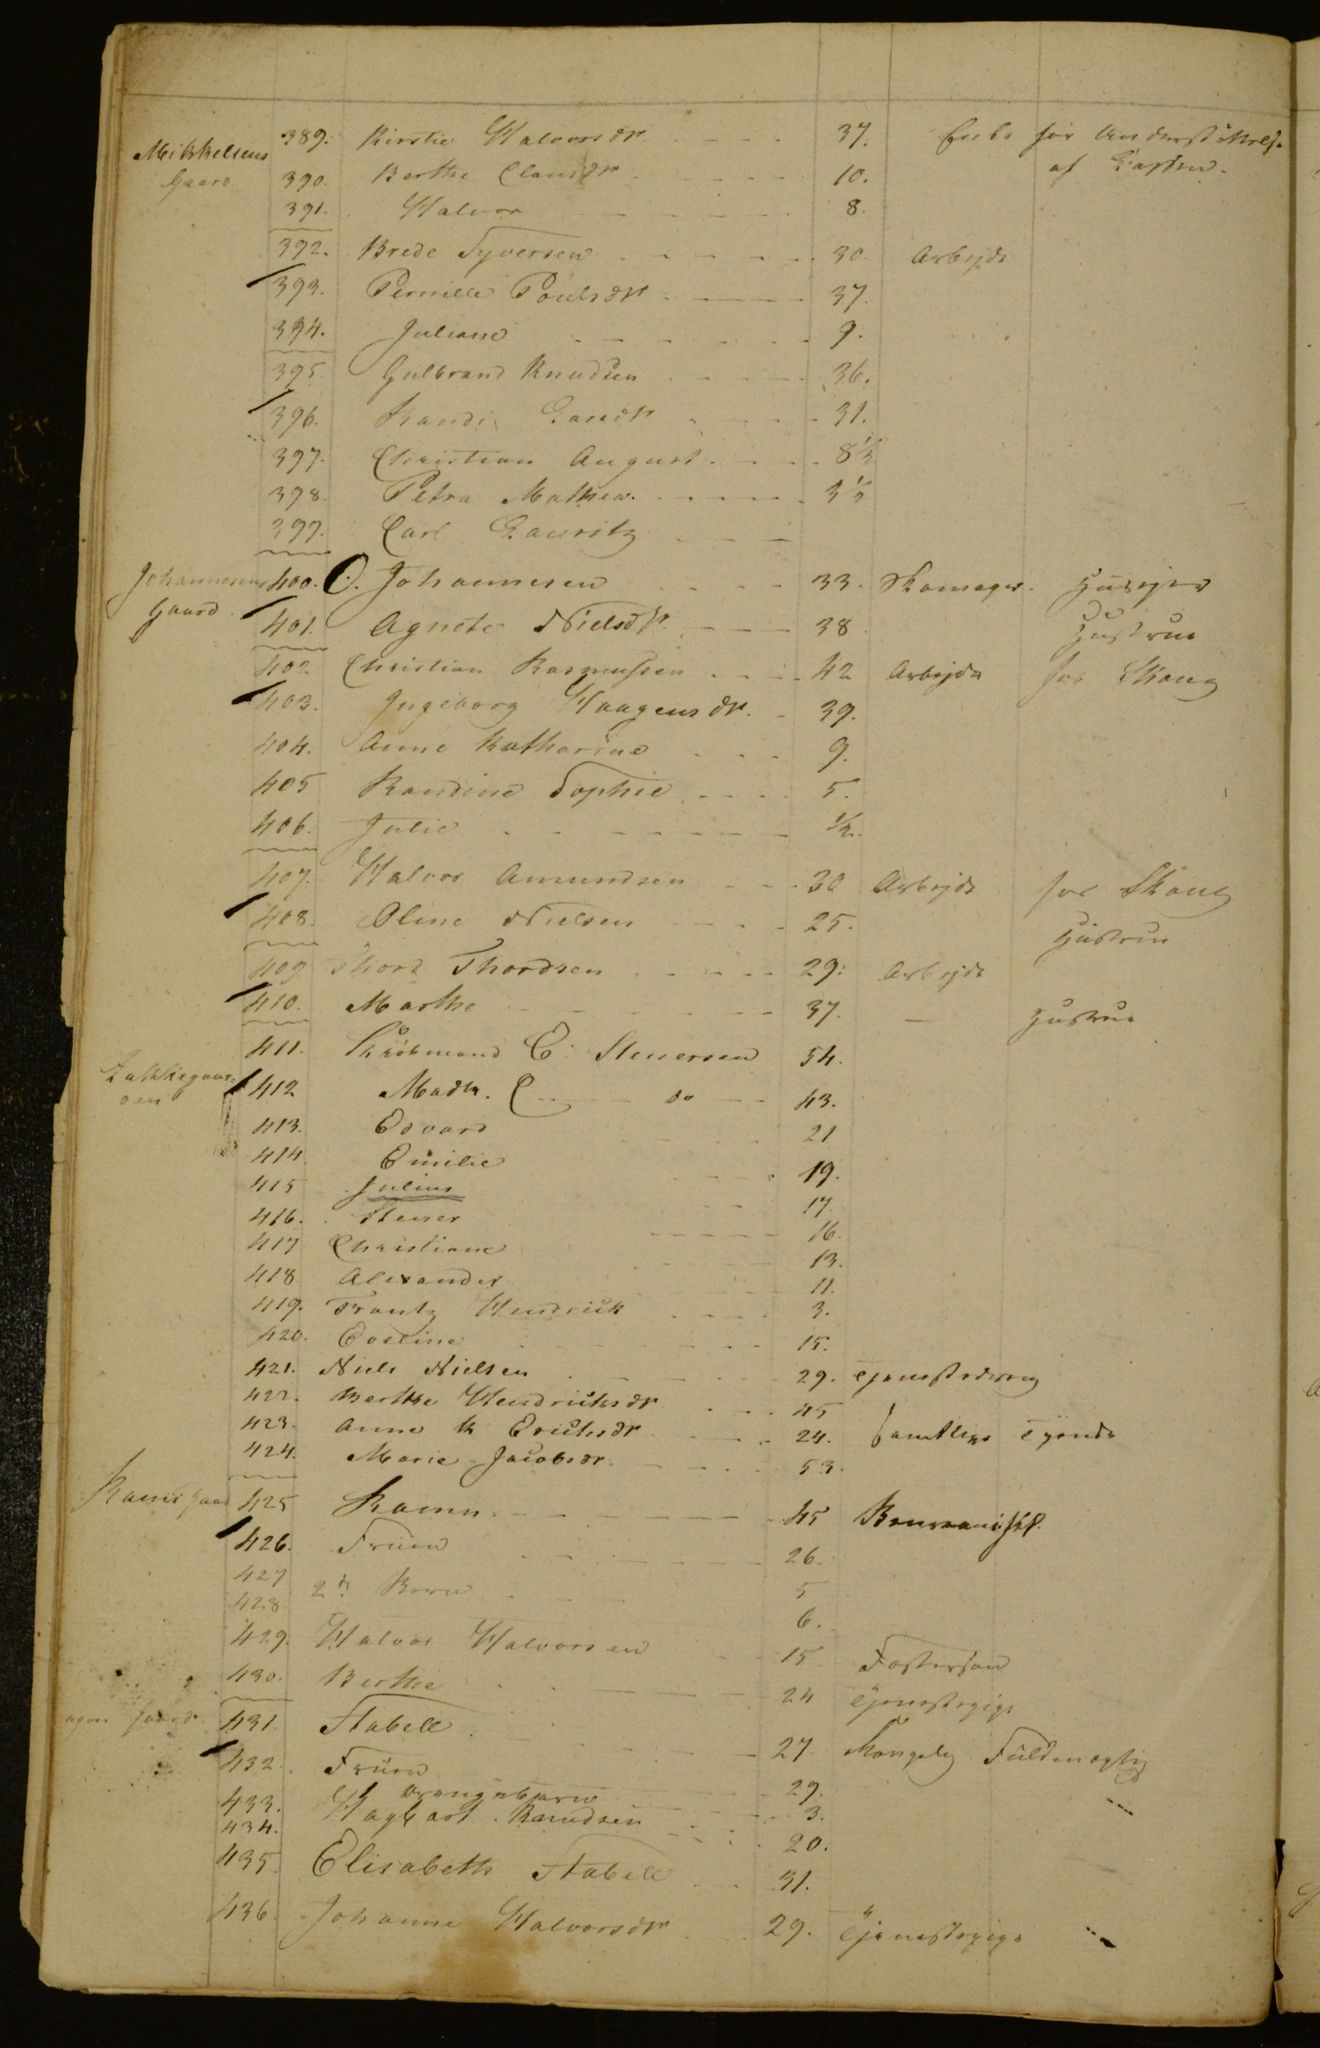 Mikkelsens 389. Kirstie Halvorsdr. 37. Enke for Understøttelse
Gaard 390. Berthe Clausdr 10. af Cassen.
391. Halvor 8.
392. Brede Syversen 30. Arbejds
393. Pernille Poulsdr 37.
394. Juliane 9.
395. Gulbrand Knudsen 36.
396. Randi Larsdr 31.
397. Christian August 8½
398. Petra Mathea. 3½
399. Carl Lauritz
Johannesens 400. O. Johannesen 33. Skomager. Huusejer
Gaard. 401. Agnete Nielsdr. 38 Hustrue
402 Christian Rasmussen 42 Arbejds for Skoug
403. Ingeborg Haagensdr. 39.
404. Anne Katharine 9.
405 Randine Sophie 5.
406. Julie ½.
407. Halvor Amundsen 30 Arbejds for Skoug
408. Oline Nielsen 25. Hustrue
409 Thord Thordsen 29. Arbejds
410. Marthe 37. — Hustrue
411. C. Stenersen 54.
Lökkegaar-
den 412 Madm. C. do 43.
413. Edvard 21
414. Emilie 19.
415 Julius 17.
416. Stener 16.
417 Christiane 13.
418 Alexander 11.
419. Frantz Hendrick 3.
420. 15.
421. Niels Nielsen 29. Tjenestedreng
422. Berthe Hendricksdr 45
423. Anne K Ericksdr 24. samtlige Tjende
424. Marie Jacobsdr. 53.
Ramms Gaard 425 Ramm. 45
426. Fruen 26.
427 2de Børn 5
428. 6.
429. Halvor Halvorsen 15 Fostersøn
430. Berthe 24 Tjenestepige
Gaard 431. Stabell 27. Fuldmægtig
432. Fruen 29.
433. Drengebarn 3.
434. Knudsen 20.
435. Elisabeth Stabell 31.
436. Johanne Halvorsdr 29. Tjenestepige